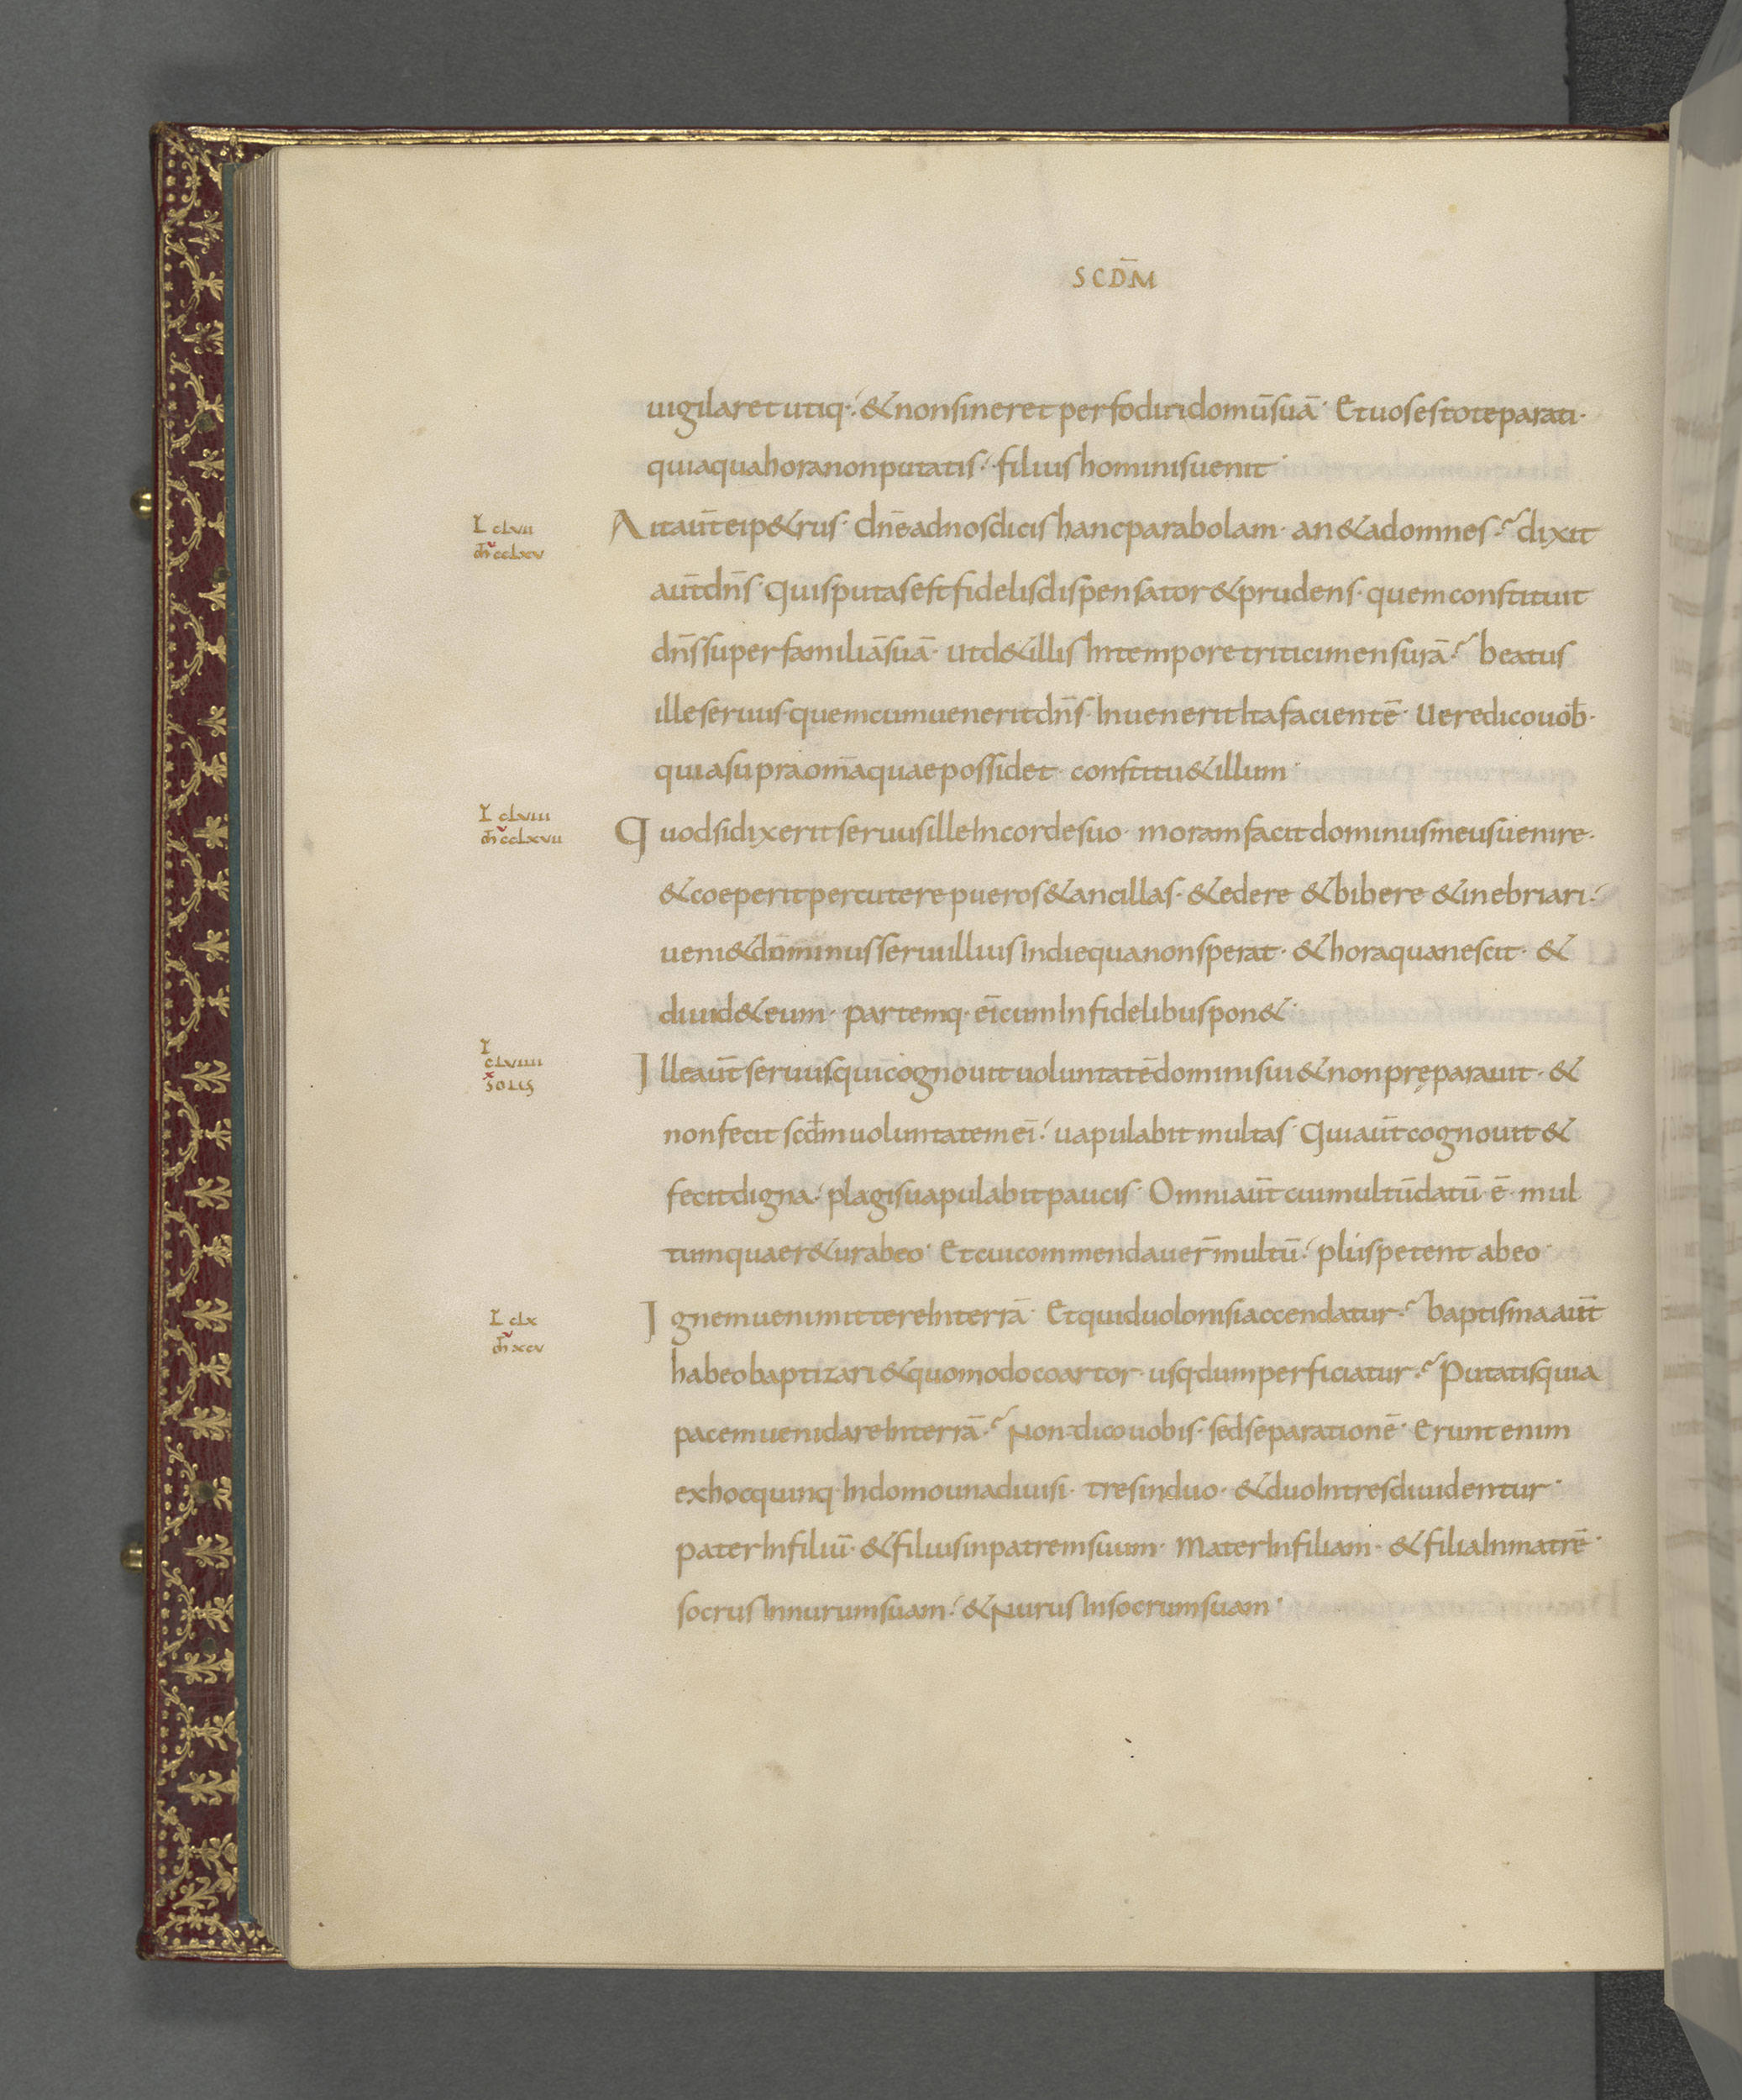 SCDM̄
uigilaret utiq·; & non sineret perfodiri domū suā· Et uos estote parati·
quia qua hora non putatis· filius hominis uenit·
L clvii
m̄ cclxv
Ait aūt ei p&rus· dn̄e ad nos dicis hanc parabolam· an & ad omnes·? dixit
aūt dn̄s· Quis putas est fidelis dispensator & prudens· quem constituit
dn̄s super familiā suā· ut d& illis in tempore tritici mensurā·? beatus
ille seruus· quem cum uenerit dn̄s· Inuenerit ita facientē· Uere dico uob̄·
quia supra om̄a quae possidet· constitu& illum·
L clviii
m̄ cclxvii
Quod si dixerit seruus ille In corde suo· moram facit dominus meus uenire·
& coeperit percutere pueros & ancillas· & edere & bibere & inebriari·
ueni& dominus serui illius In die qua non sperat· & hora qua nescit· &
diuid& eum· partemq· ei̅ cum Infidelibus pon&·
L
clviiii
x
solus
Ille aūt seruus qui cognouit uoluntatē domini sui & non pręparauit· &
non fecit scd̄m uoluntatem ei̅· uapulabit multas· Qui aūt cognouit &
fecit digna· plagis uapulabit paucis· Omni aūt cui multū datū ē· mul
tum quaer&ur ab eo· Et cui commendauer̄ multū· plus petent ab eo·
L clx
m̄ xcv
Ignem ueni mittere In terrā· Et quid uolo nisi accendatur·? baptisma aūt
habeo baptizari & quomodo coartor· usq· dum perficiatur·? Putatis quia
pacem ueni dare In terrā·? Non dico uobis· sed separationē· Erunt enim
ex hoc quinq· In domo una diuisi· tres in duo· & duo In tres diuidentur·
pater In filiū· & filius in patrem suum· Mater In filiam· & filia In matrē·
socrus In nurum suam· & Nurus In socrum suam·